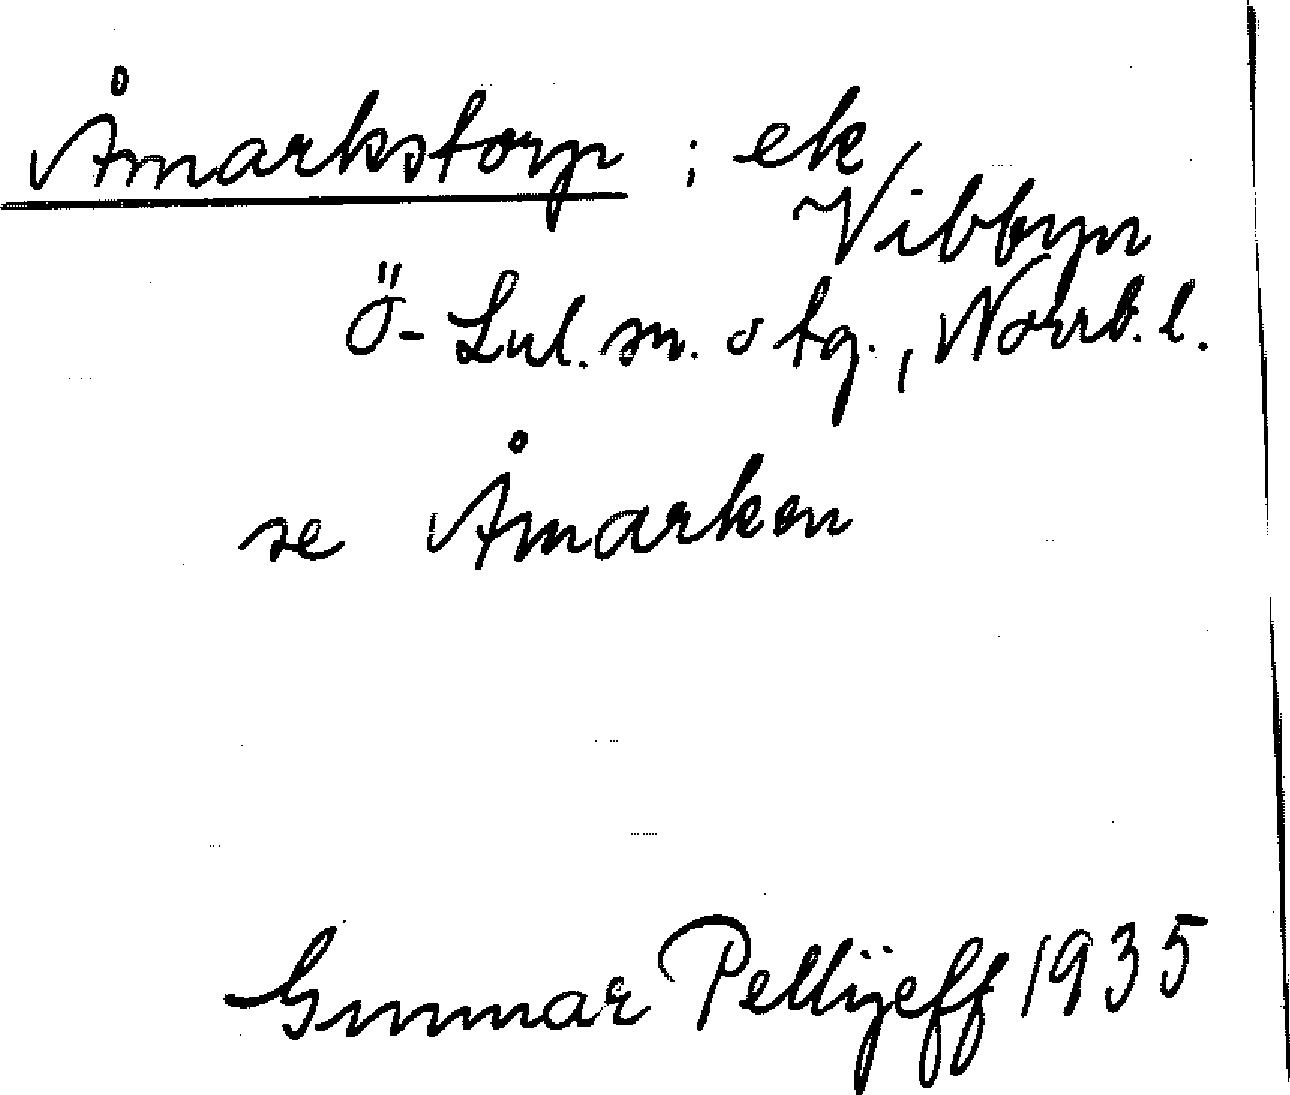 Åmarkstorp ; ek
Vibbyn
Ö-Lul. sn. o tg., Norrb. l.
se Åmarken
Gunnar Pellijeff 1935